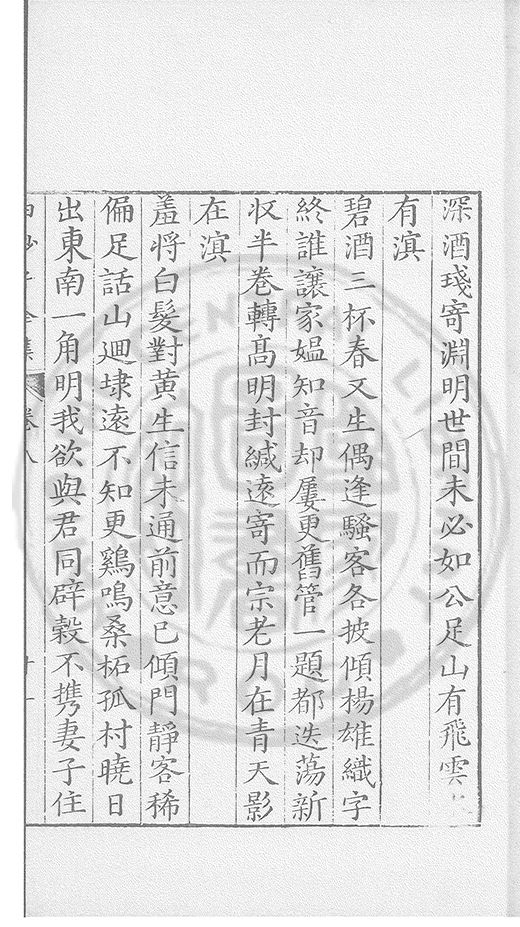 深酒琖寄淵明世間未必如公足山有飛雲
有滇
碧酒三杯春又生偶逢騷客各披傾楊雄織字
終誰讓家媼知音却屢更舊管一題都迭蕩新
收半卷轉髙明封緘遠寄而宗老月在青天影
在滇
羞將白髮對黄生信未通前意已傾門靜客稀
偏足話山迴埭遠不知更鷄鳴桑柘孤村曉日
出東南一角明我欲與君同辟穀不携妻子住
全集 卷八